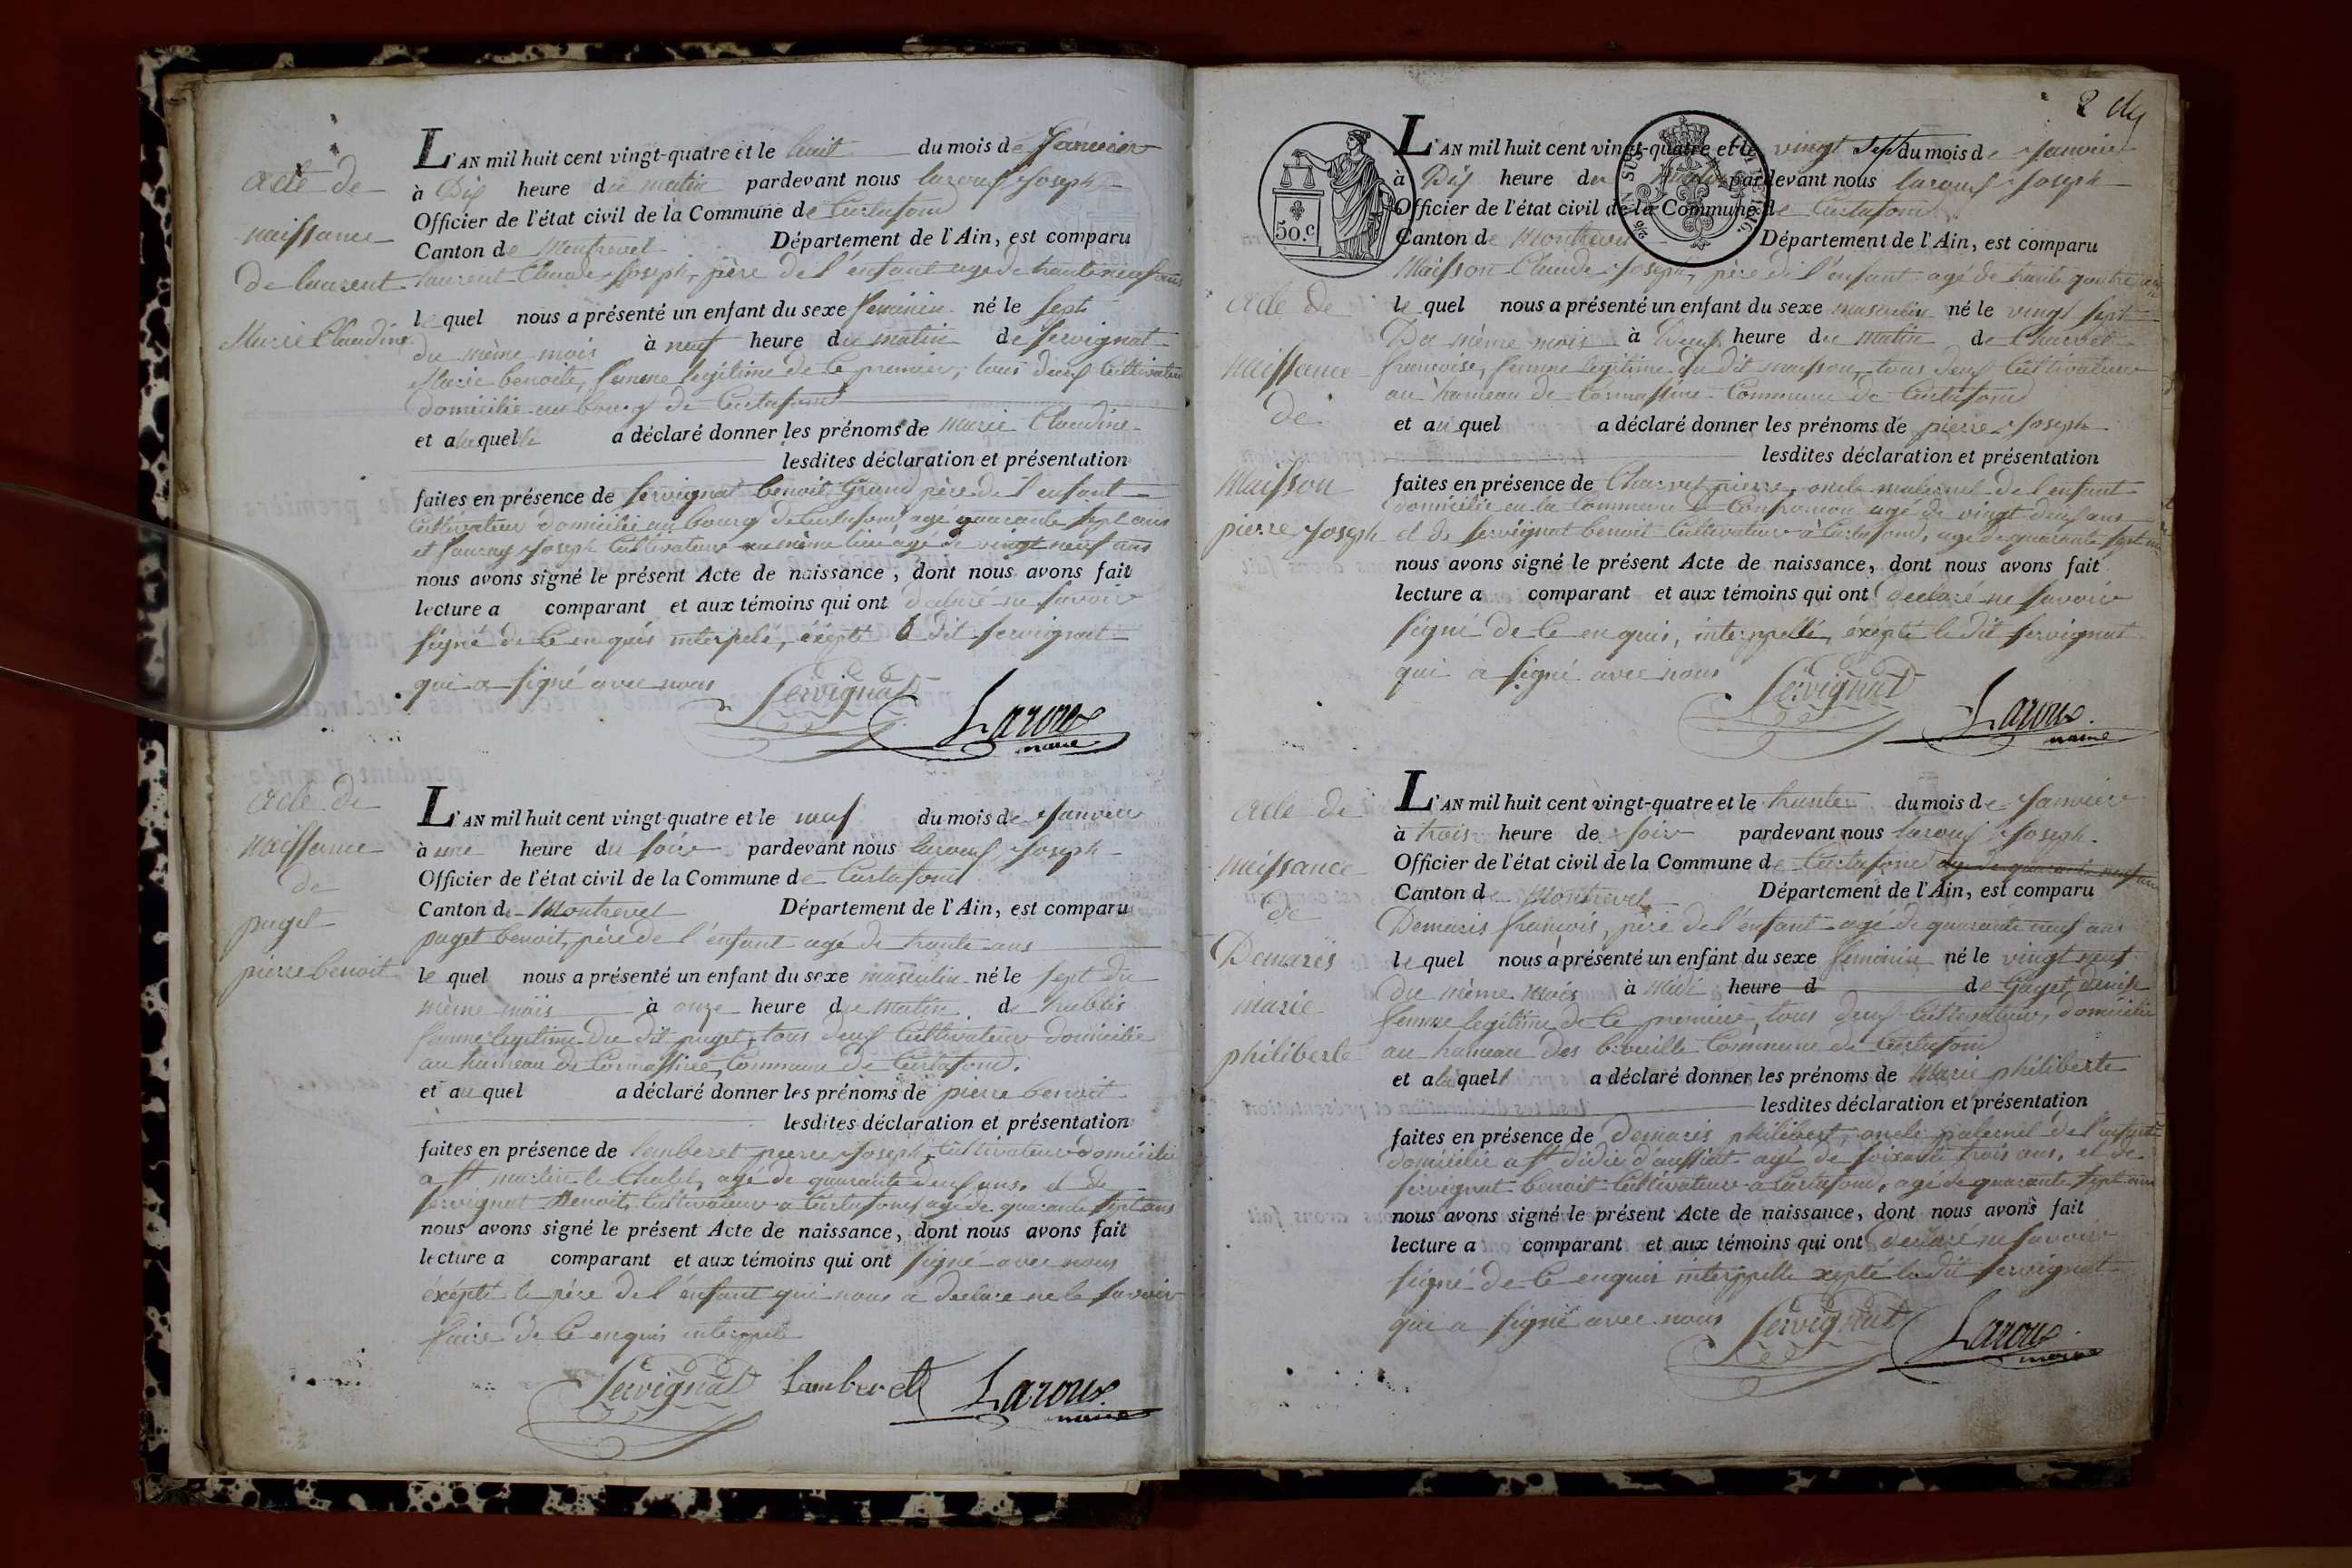 acte de
naissance
de laurent
Marie Claudine
L'AN mil huit cent vingt-quatre et le huit du mois de Janvier
à Dix heure du matin pardevant nous laroux Joseph
Officier de l'état civil de la Commune de Curtafond
Canton de Montrevel Département de l'Ain, est comparu
laurent Claude Joseph, père de l'enfant agé de trente neuf ans
le quel nous a présenté un enfant du sexe feminin né le sept
du mème mois à neuf heure du matin de servignat
Marie benoite, femme legitime de Ce premier, tous deux Cultivateur
domicilié au bourg de Curtafond
et a laquelle a déclaré donner les prénoms de Marie Claudine
lesdites déclaration et présentation
faites en présence de servignat benoit Grand père de l'enfant
Cultivateur domicilié au bourg de Curtafond, agé quarante sept ans
et Joseph Cultivateur au mème lieu agé de vingt neuf ans
nous avons signé le présent Acte de naissance, dont nous avons fait
lecture a comparant et aux témoins qui ont declaré ne savoir
signé de Ce enquis interpelé, éxépté le dit servignat
qui a signé avec nous
Servignat Laroux
maire
acte de
naissance
de
puget
pierre benoit
L'AN mil huit cent vingt-quatre et le neuf du mois de Janvier
à une heure du soir pardevant nous laroux Joseph
Officier de l'état civil de la Commune de Curtafond
Canton de Montrevel Département de l'Ain, est comparu
puget benoit, père de l'enfant agé de trente ans
le quel nous a présenté un enfant du sexe masculin né le sept du
mème mois à onze heure du matin de
femme legitime du dit puget, tous deux Cultivateur domicilié
au hameau de Cormassine, Commune de Curtafond.
et au quel a déclaré donner les prénoms de pierre benoit
lesdites déclaration et présentation
faites en présence de lamberet pierre Joseph, Cultivateur domicilié
a st martin le Chatel, agé de quarante deux ans. et de
servignat Benoit, Cultivateur a Curtafond agé de quarante sept ans
nous avons signé le présent Acte de naissance, dont nous avons fait
lecture a comparant et aux témoins qui ont signé avec nous
éxépté le père de l'enfant qui nous a declaré ne le savoir
faire de Ce enquis interpelé
Servignat Lamberet Laroux
maire
2
50.c
L'AN mil huit cent vingt-quatre et le vingt sept du mois de Janvier
à Dix heure du matin pardevant nous laroux Joseph
Officier de l'état civil de la Commune de Curtafond
Canton de Montrevel Département de l'Ain, est comparu
Maisson Claude Joseph, père de l'enfant agé de trente quatre ans
acte de
naissance
de
Maisson
pierre Joseph
le quel nous a présenté un enfant du sexe masculin né le vingt sept
Du mème mois à Deux heure du matin de Charvet
francoise, femme legitime du dit maisson, tous deux Cultivateur
au hameau de Cormassine Commune de Curtafond
et au quel a déclaré donner les prénoms de pierre Joseph
lesdites déclaration et présentation
faites en présence de Charvet pierre, oncle maternel de l'enfant
domicilié en la Commune de Confrancon agé de vingt deux ans
et de servignat benoit Cultivateur à Curtafond, agé de quarante sept ans
nous avons signé le présent Acte de naissance, dont nous avons fait
lecture a comparant et aux témoins qui ont declaré ne savoir
signé de Ce enquis, interppellé, éxépté le dit servignat
qui a signé avec nous
Servignat Laroux
maire
acte de
naissance
de
Demarès
marie
philiberte
L'AN mil huit cent vingt-quatre et le trente du mois de Janvier
à trois heure de soir pardevant nous laroux Joseph.
Officier de l'état civil de la Commune de Curtafond agé de quarante neuf ans
Canton de Montrevel Département de l'Ain, est comparu
Demaris francois, père de l'enfant agé de quarante neuf ans
le quel nous a présenté un enfant du sexe feminin né le vingt neuf
du mème mois à midi heure d de Gayet denise
femme legitime de Ce premier, tous deux Cultivateur, domicilié
au hameau des Commune de Curtafond
et a laquelle a déclaré donner les prénoms de Marie philiberte
lesdites déclaration et présentation
faites en présence de Demaris philibert, oncle paternel de l'enfant
domicilié a st didier d'aussiat agé de soixante trois ans, et de
servignat benoit Cultivateur a Curtafond, agé de quarante sept ans
nous avons signé le présent Acte de naissance, dont nous avons fait
lecture a comparant et aux témoins qui ont declaré ne savoir
signé de Ce enquis interppellé xepté le dit servignat
qui a signé avec nous
Servignat Laroux
maire